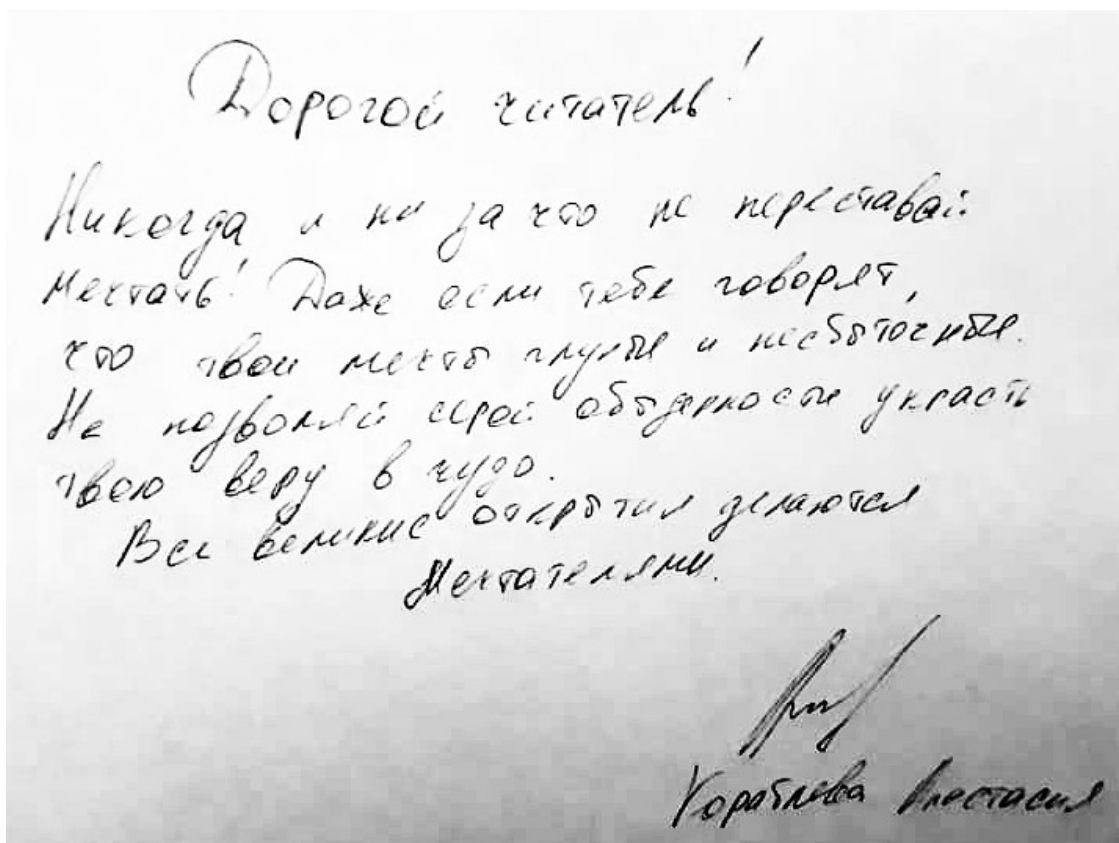 Дорогой читатель!
Никогда и ни за что не переставай
мечтать! Даже если тебе говорят,
что твои мечты глупые и несбыточные.
Не позволяй серой обыденности украсть
твою веру в чудо.
Все великие открытия делаются
Мечтателями.
Кораблева Анастасия